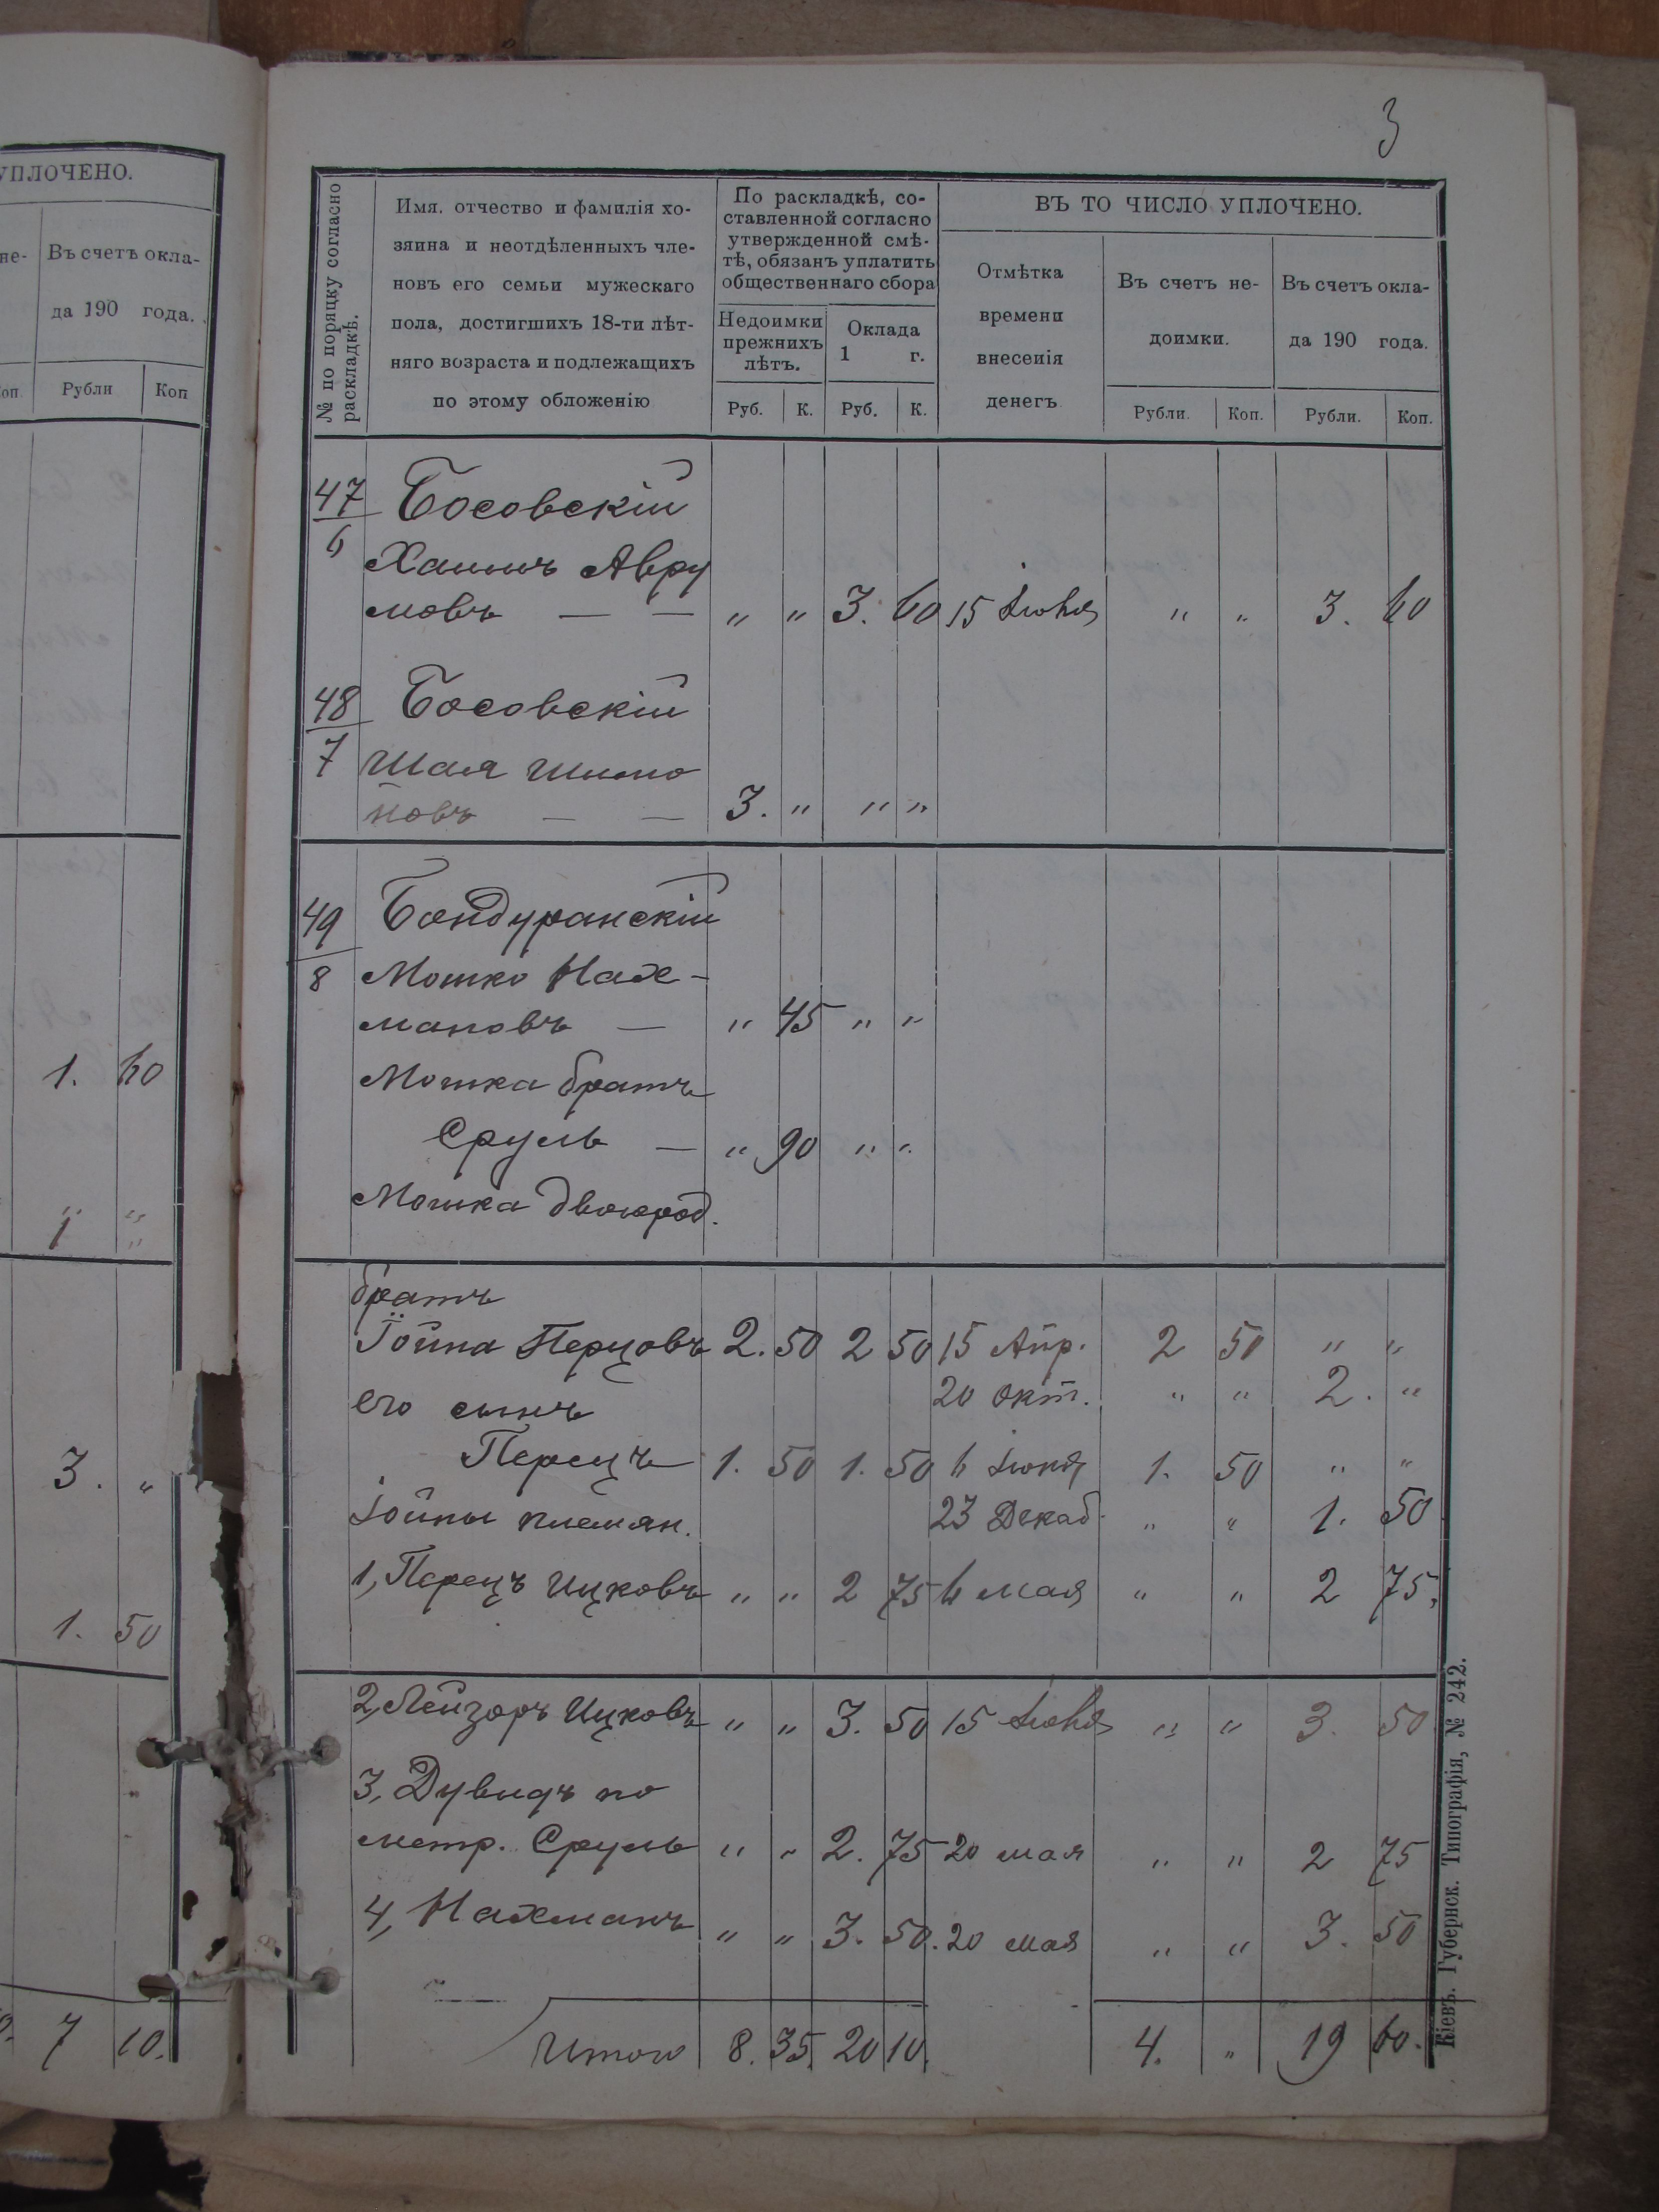 УПЛОЧЕНО.
не-
Въ счетъ окла-
да 190 года.
Рубли
Коп
1. 60
3. „
1. 50
7 10.
3
№ по порядку согласно
раскладкѣ.
Имя, отчество и фамилія хо-
зяина и неотдѣленныхъ чле-
новъ его семьи мужескаго
пола, достигшихъ 18-ти лѣт-
няго возраста и подлежащихъ
по этому обложенію
По раскладкѣ, со-
ставленной согласно
утвержденной смѣ-
тѣ, обязанъ уплатить
общественнаго сбора
Недоимки
прежнихъ
лѣтъ.
Оклада
1 г.
Руб. К. Руб. К.
ВЪ ТО ЧИСЛО УПЛОЧЕНО.
Отмѣтка
времени
внесенія
денегъ
Въ счетъ не-
доимки.
Въ счетъ окла-
да 190 года.
Рубли. Коп. Рубли. Коп.
47 Босовскій
6
Хаимъ Авру
мовъ — — „ „ 3. 60 15 Іюня „ „ 3. 60
48 Босовскій
7 Шая Шимо
новъ — — 3. „ „ „
49 Бондуранскій
8 Мошко Нах-
мановъ — „ 45 „ „
Мошка братъ
Сруль — „ 90 „ „
Мошка двоюрод.
братъ
Іойна Перцовъ 2. 50 2 50 15 Апр. 2 50 „ „
20 Окт. „ „ 2. „
его сынъ
Перецъ 1. 50 1. 50 6 Іюня 1. 50 „ „
Іойны племян. 23 Декаб. „ „ 1. 50
1, Перецъ Ицковъ „ „ 2 75 6 Мая „ „ 2 75.
2, Лейзоръ Ицковъ „ „ 3. 50 15 Іюня „ „ 3. 50
3, Дувидъ по
метр. Сруль „ „ 2. 75 20 мая „ „ 2 75
4, Нахманъ „ „ 3. 50. 20 мая „ „ 3. 50
Итого 8. 35. 20 10. 4. „ 19 60.
Кіевъ. Губернск. Типографія, № 242.